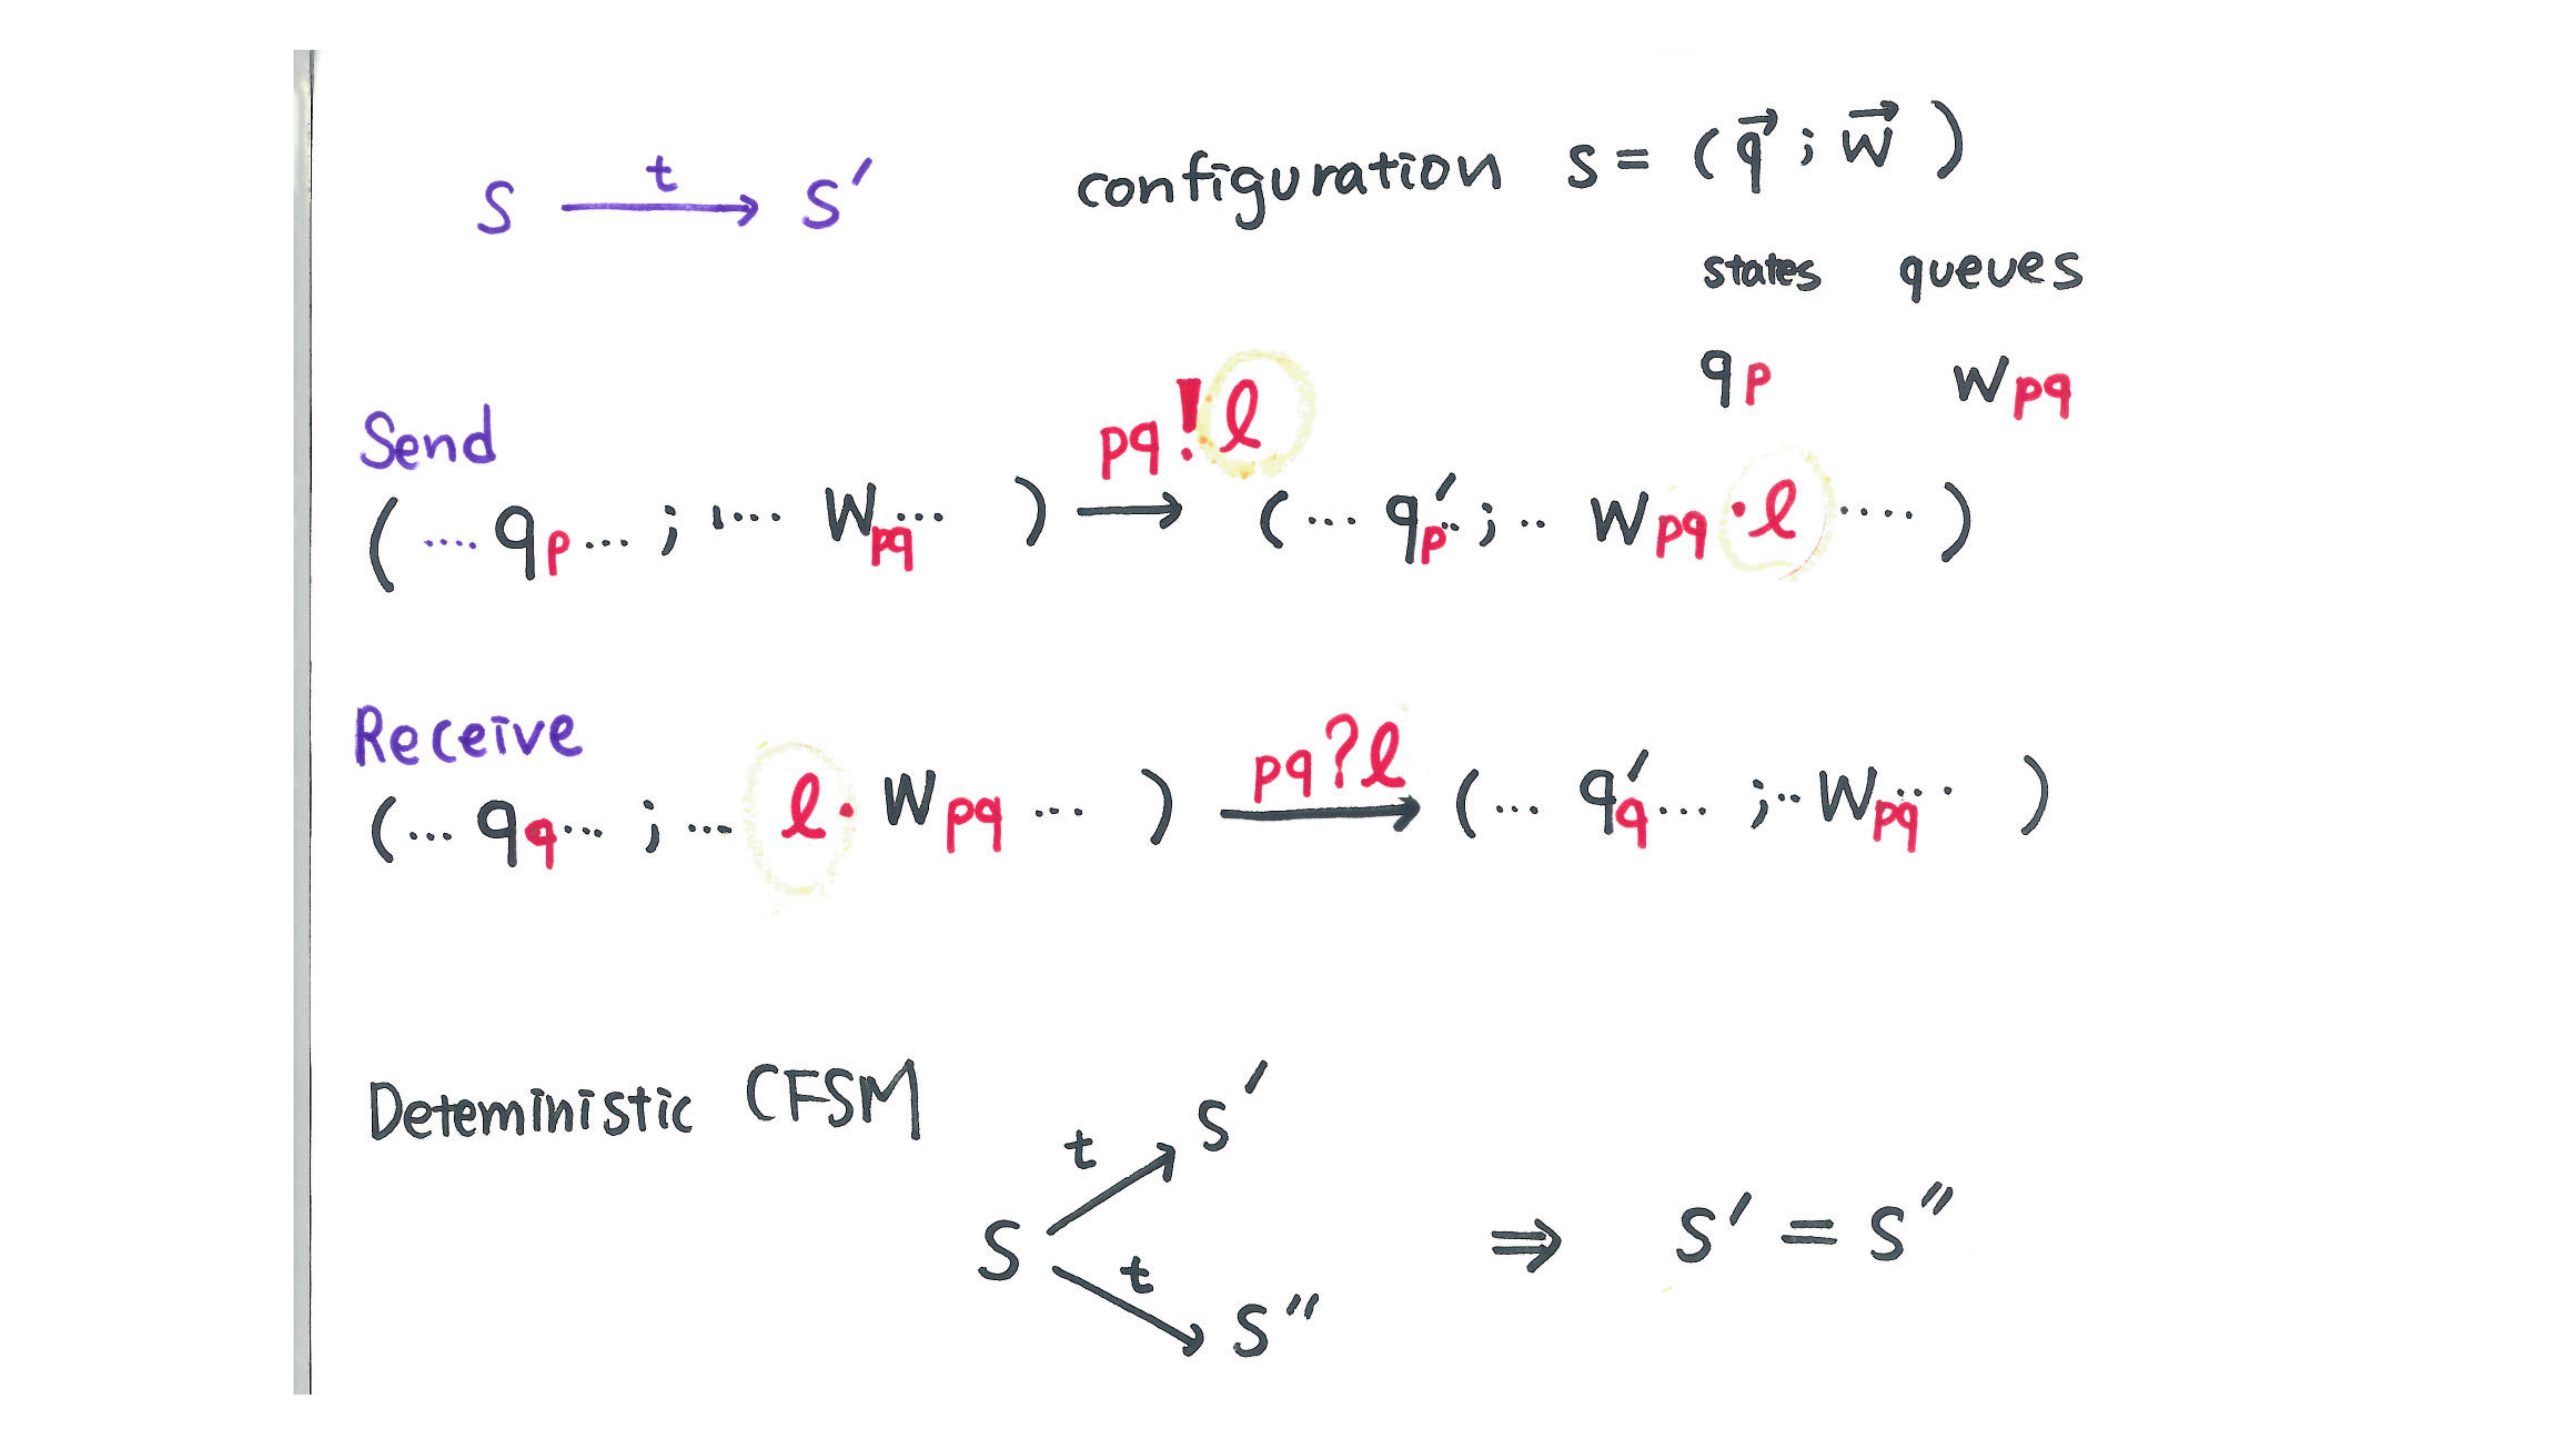 s —t→ s′ configuration s = (q⃗ ; w⃗ )
states queues
qp wpq
Send pq!l
(.... qp... ; .... wpq... ) → (... q′p.. ; .. wpq·l .... )
Receive pq?l
(... qq... ; ... l· wpq ... ) → (... q′q... ; .. wpq... )
Deteministic CFSM s′
t
s ⇒ s′ = s″
t
s″